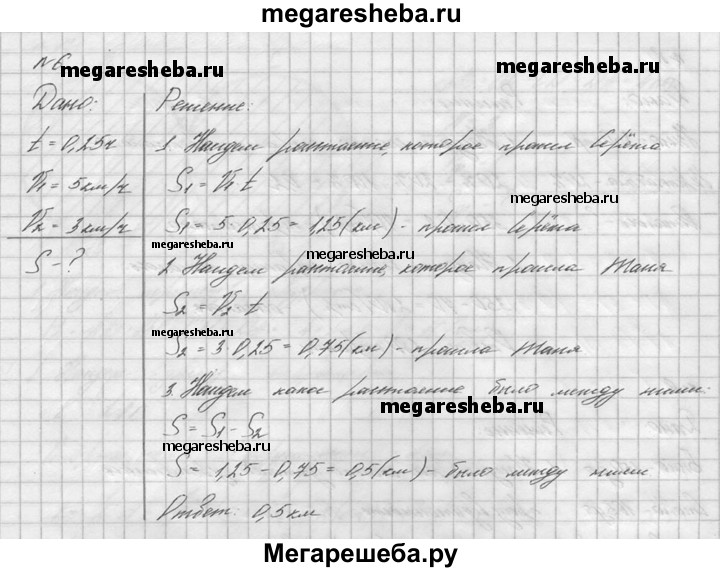 megaresheba.ru
№6
megaresheba.ru
megaresheba.ru
Дано:
Решение:
t = 0,25ч
1. Найдем расстояние, которое прошел Серёжа
V₁ = 5км/ч
S₁ = V₁ t
megaresheba.ru
V₂ = 3км/ч
S₁ = 5 · 0,25 = 1,25(км) - прошел Серёжа
megaresheba.ru
S - ?
2. Найдем расстояние, которое прошла Таня
S₂ = V₂ t
megaresheba.ru
S₂ = 3 · 0,25 = 0,75(км) - прошла Таня
3. Найдем какое расстояние было между ними:
megaresheba.ru
S = S₁ - S₂
megaresheba.ru
S = 1,25 - 0,75 = 0,5(км) - было между ними
Ответ: 0,5км
Мегарешеба.ру